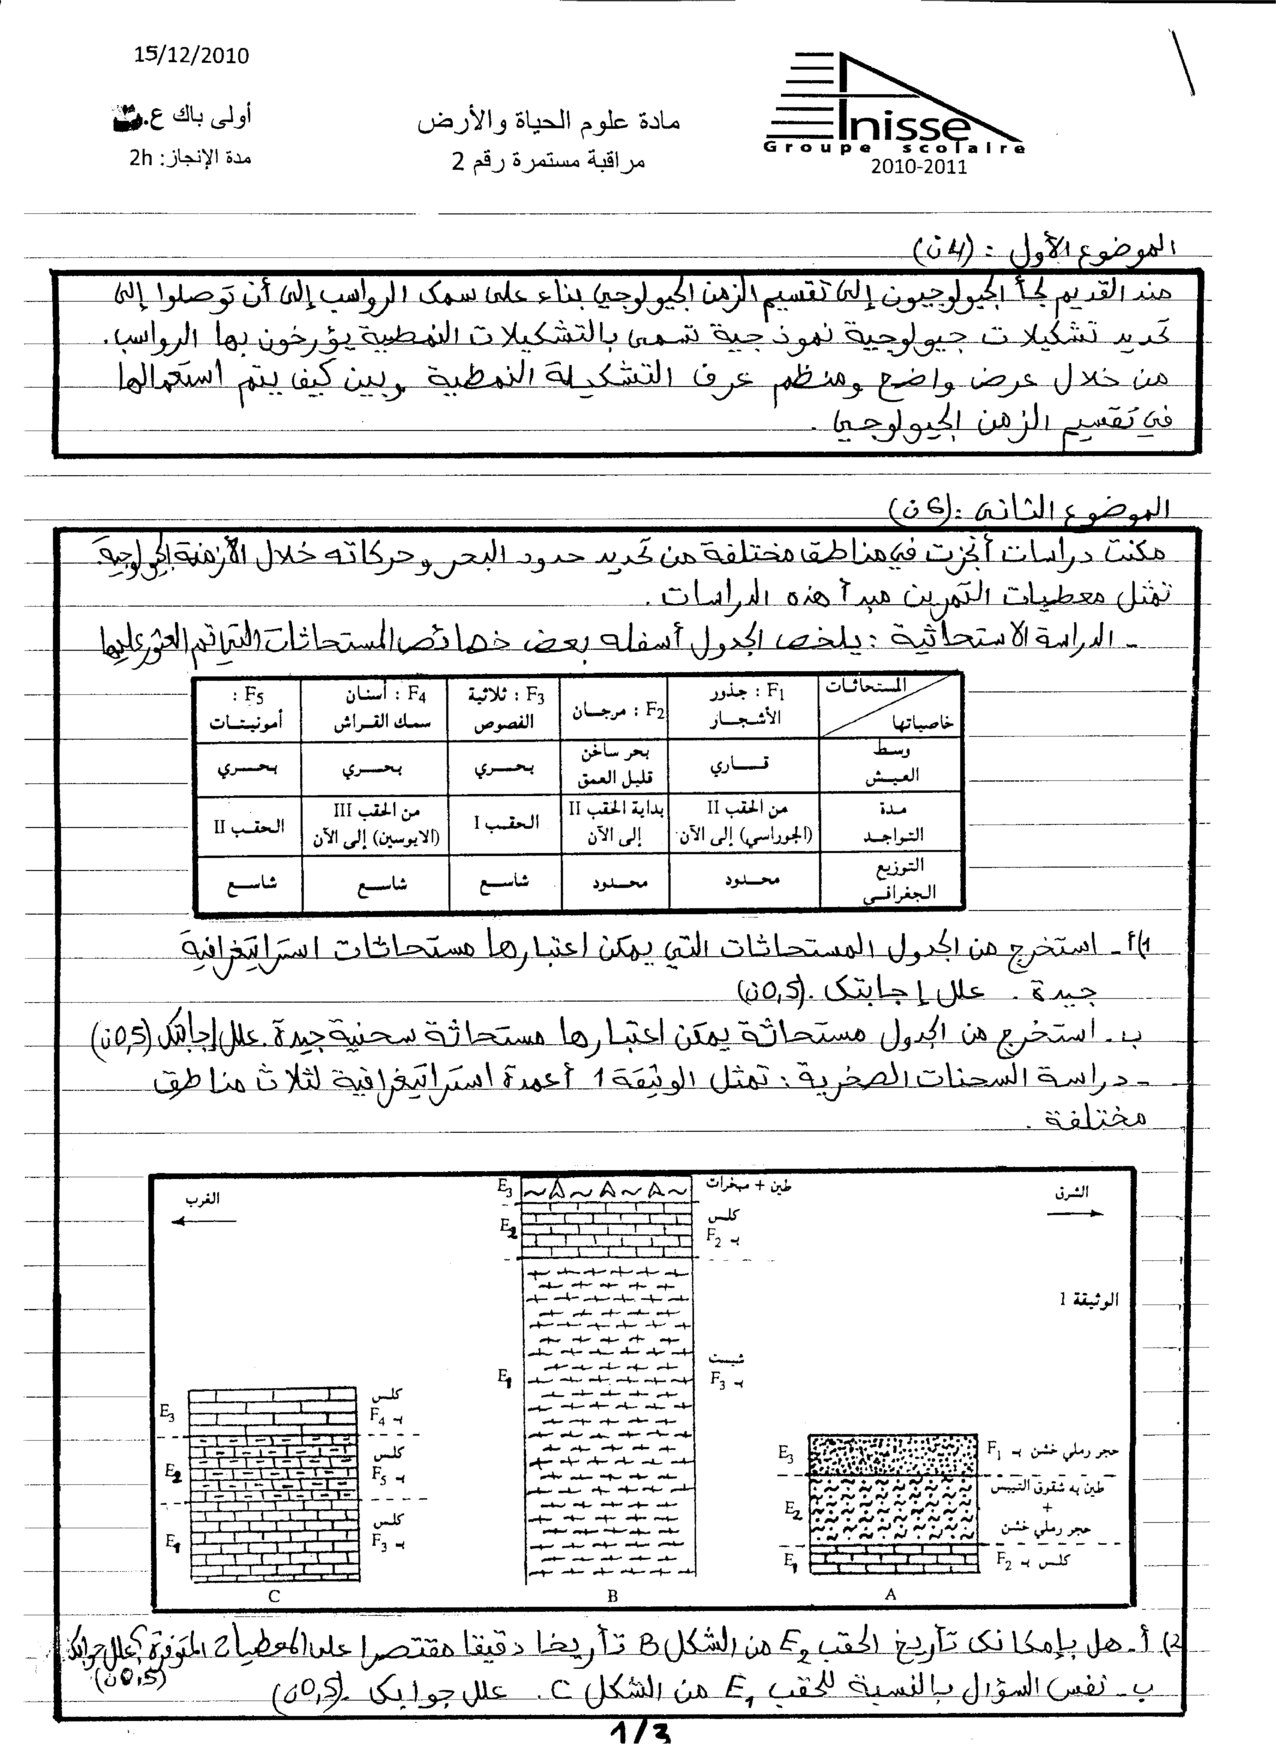 15/12/2010
أولى باك ع.
مدة الإنجاز: 2h
مادة علوم الحياة والأرض
مراقبة مستمرة رقم 2
Anisse
Groupe scolaire
2010-2011
الموضوع الأول : (4ن)
منذ القديم لجأ الجيولوجيون إلى تقسيم الزمن الجيولوجي بناء على سمك الرواسب إلى أن توصلوا إلى
تحديد تشكيلات جيولوجية نموذجية تسمى بالتشكيلات النمطية يؤرخون بها الرواسب.
من خلال عرض واضح ومنظم عرف التشكيلة النمطية وبين كيف يتم استعمالها
في تقسيم الزمن الجيولوجي .
الموضوع الثاني : (6ن)
مكنت دراسات أنجزت في مناطق مختلفة من تحديد حدود البحر وحركاته خلال الأزمنة الجيولوجية.
تمثل معطيات التمرين مبدأ هذه الدراسات .
- الدراسة الاستحاثية : يلخص الجدول أسفله بعض خصائص المستحاثات التي تم العثور عليها
المستحاثات
خاصياتها
F1 : جذور الأشجار
F2 : مرجان
F3 : ثلاثية الفصوص
F4 : أسنان سمك القراش
F5 : أمونيتات
وسط العيش
قاري
بحر ساخن قليل العمق
بحري
بحري
بحري
مدة التواجد
من الحقب II (الجوراسي) إلى الآن
بداية الحقب II إلى الآن
الحقب I
من الحقب III (الايوسين) إلى الآن
الحقب II
التوزيع الجغرافي
محدود
محدود
شاسع
شاسع
شاسع
1) أ- استخرج من الجدول المستحاثات التي يمكن اعتبارها مستحاثات استراتيغرافية
جيدة . علل إجابتك .(0,5ن)
ب- استخرج من الجدول مستحاثة يمكن اعتبارها مستحاثة سحنية جيدة. علل إجابتك (0,5ن)
- دراسة السحنات الصخرية : تمثل الوثيقة 1 أعمدة استراتيغرافية لثلاث مناطق
مختلفة .
الغرب
الشرق
الوثيقة 1
E3
طين + مبخرات
E2
كلس بـ F2
E1
شيست بـ F3
B
E3
كلس بـ F4
E2
كلس بـ F5
E1
كلس بـ F3
C
E3
حجر رملي خشن بـ F1
E2
طين به شقوق التيبس
+
حجر رملي خشن
E1
كلس بـ F2
A
2) أ- هل بإمكانك تأريخ الحقب E2 من الشكل B تأريخا دقيقا مقتصرا على المعطيات المتوفرة؟ علل جوابك
(0,5ن)
ب- نفس السؤال بالنسبة للحقب E1 من الشكل C. علل جوابك .(0,5ن)
1/3